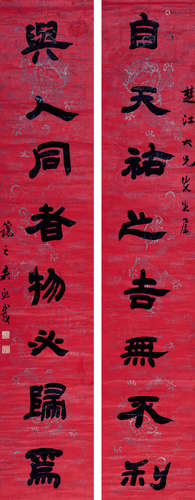 楚江大兄先生屬
自天祐之吉無不利
與人同者物必歸焉
讓之吳熙載